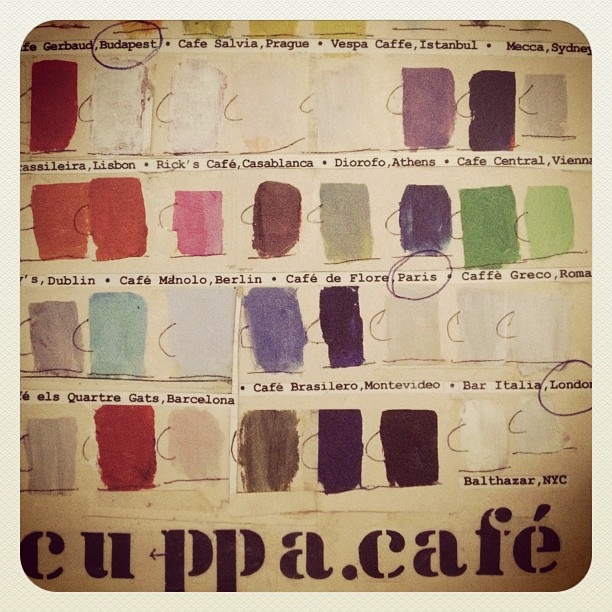 fe Gerbaud,Budapest • Cafe Salvia,Prague • Vespa Caffe,Istanbul • Mecca,Sydney
rassileira,Lisbon • Rick's Café,Casablanca • Diorofo,Athens • Cafe Central,Vienna
y's,Dublin • Café Manolo,Berlin • Café de Flore,Paris • Caffè Greco,Roma
fé els Quartre Gats,Barcelona • Café Brasilero,Montevideo • Bar Italia,London
Balthazar,NYC
cuppa.café